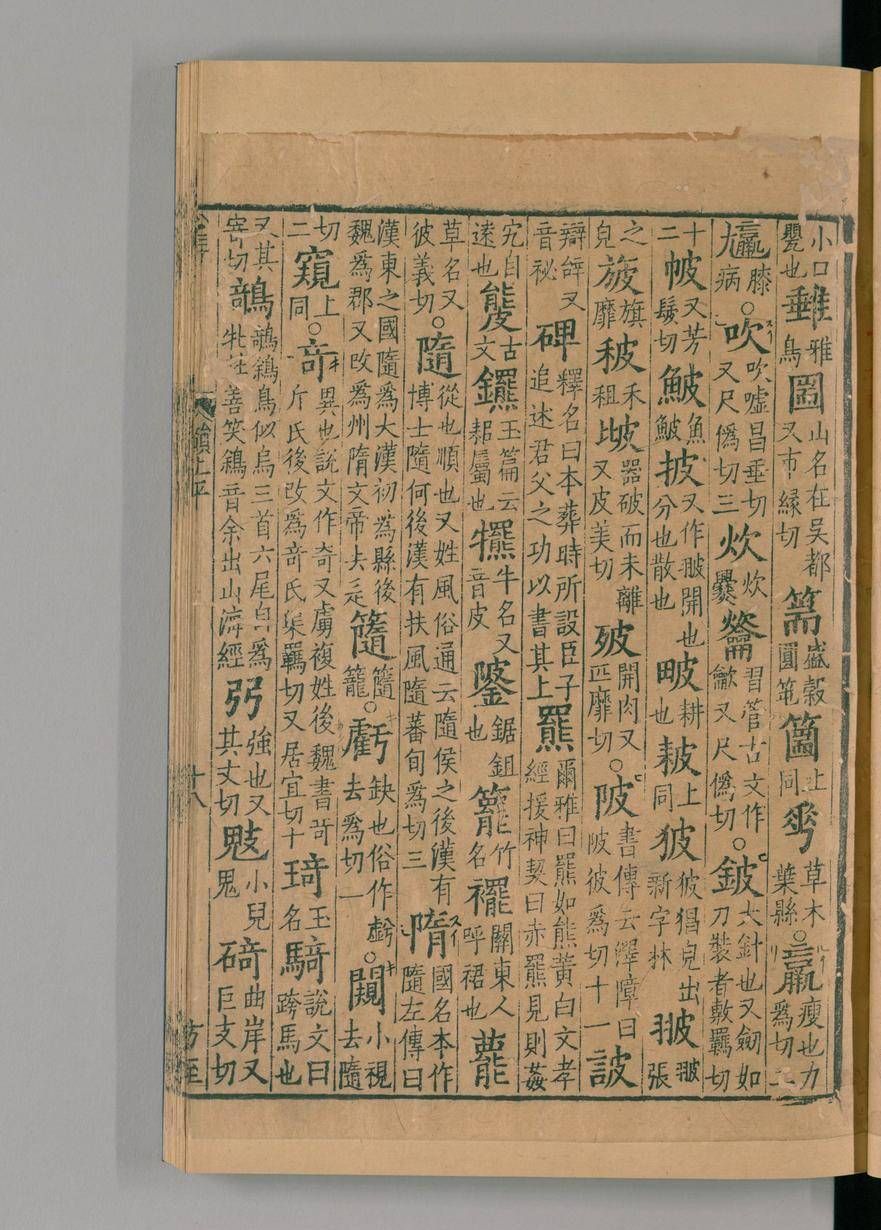 小口甖也䳠雅鳥圌山名在吳都又巿縁切篅盛穀圓笣𥫱上同𠌶草木葉縣○羸瘦也力爲切二
膝病○吹吹嘘昌垂切又尺僞切三炊炊爨龡習管古文作龡又尺僞切○鈹大針也又劒如刀裝者敷羈切
十二帔又芳髲切鮍魚鮍披又作翍開也分也散也畈耕也耚上同狓狓猖皃出新字林翍翍張
之皃旇旗靡秛禾租㱟器破而未離又皮美切㱟開肉又匹靡切○陂書傳云澤障曰陂彼爲切十一詖
辯辝又音祕碑釋名曰本葬時所設臣子追述君父之功以書其上羆爾雅曰羆如熊黃白文孝經援神契曰赤羆見則姦
宄自遠也古文䥯玉篇云耜屬也犤牛名又音皮鋸鉏也竹名襬關東人呼裙也藣
草名又彼義切○隨從也順也又姓風俗通云隨侯之後漢有博士隨何後漢有扶風隨蕃旬爲切三隋國名本作隨左傳曰
漢東之國隨爲大漢初爲縣後魏爲郡又改爲州隋文帝去辵籠○虧缺也俗作虧去爲切一闚小視去隨
切二窺上同○竒異也說文作奇又虜複姓後魏書竒斤氏後改爲竒氏渠羈切又居宜切十琦玉名騎說文曰跨馬也
又其寄切鵸鵸鵌鳥似烏三首六尾自爲牝牡善笑鵌音余出山海經弜強也又其丈切鬾小兒鬼碕曲岸又巨支切
韻上平 十八 方至